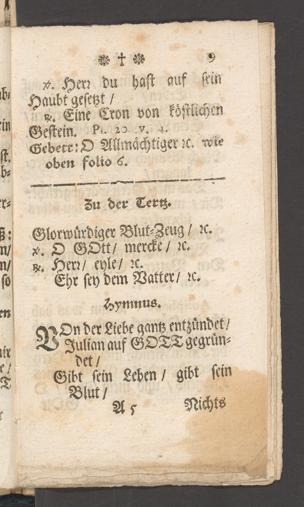 ❉ ✝ ❉ 9
℣. Herr du hast auf sein
Haubt gesetzt /
℟. Eine Cron von köstlichen
Gestein. Ps. 20. v. 4.
Gebett: O Allmächtiger ꝛc. wie
oben folio 6.
Zu der Tertz.
Glorwürdiger Blut-Zeug / ꝛc.
℣. O GOtt / mercke / ꝛc.
℟. Herr / eyle / ꝛc.
Ehr sey dem Vatter / ꝛc.
Hymnus.
VOn der Liebe gantz entzündet /
Julian auf GOTT gegrün-
det /
Gibt sein Leben / gibt sein
Blut /
A 5 Nichts